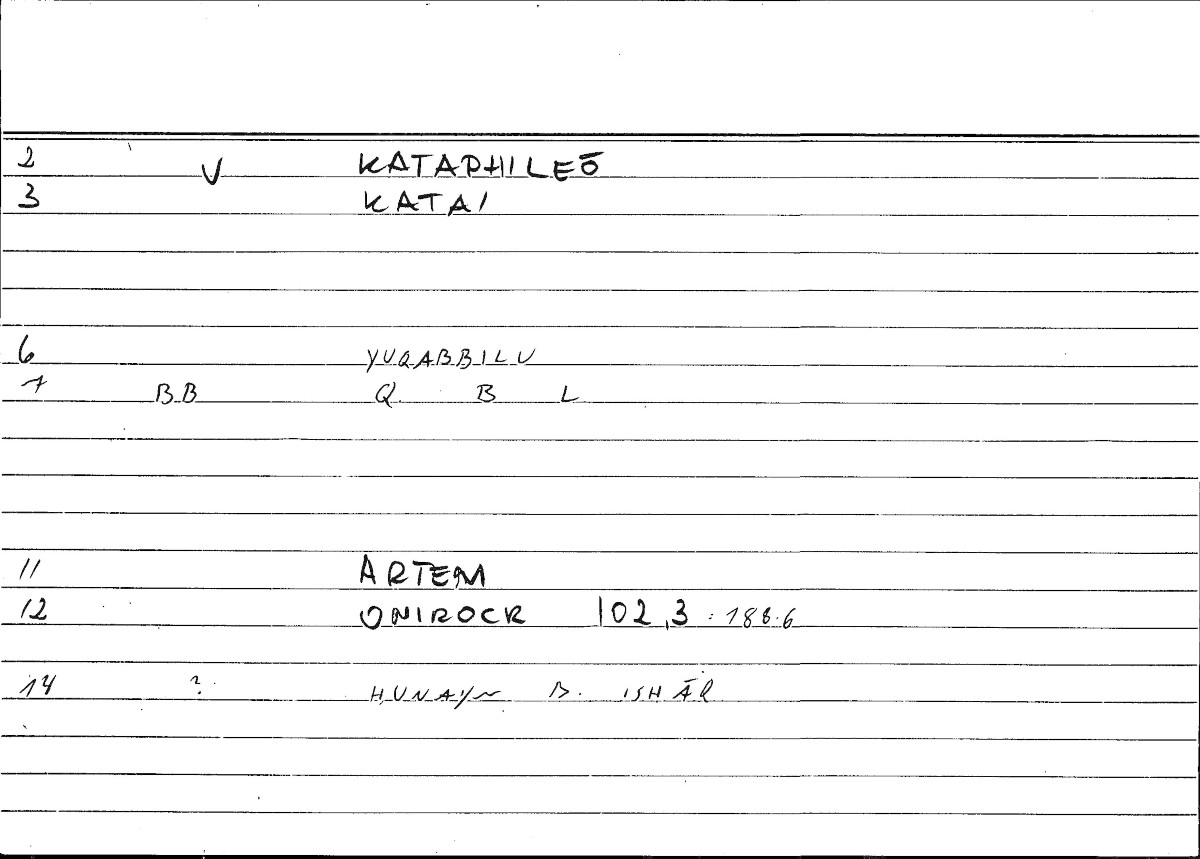 2 V KATAPHILEŌ
3 KATAI
6 YUQABBILU
7 BB Q B L
11 ARTEM
12 ONIROCR 102,3 : 188.6
14 ? ḤUNAYN B. ISHĀQ